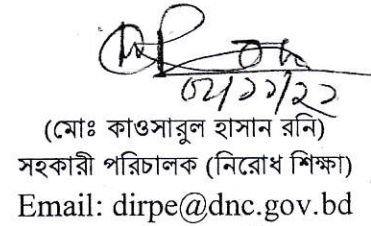 ০৮/১১/২২
(মোঃ কাওসারুল হাসান রনি)
সহকারী পরিচালক (নিরোধ শিক্ষা)
Email: dirpe@dnc.gov.bd